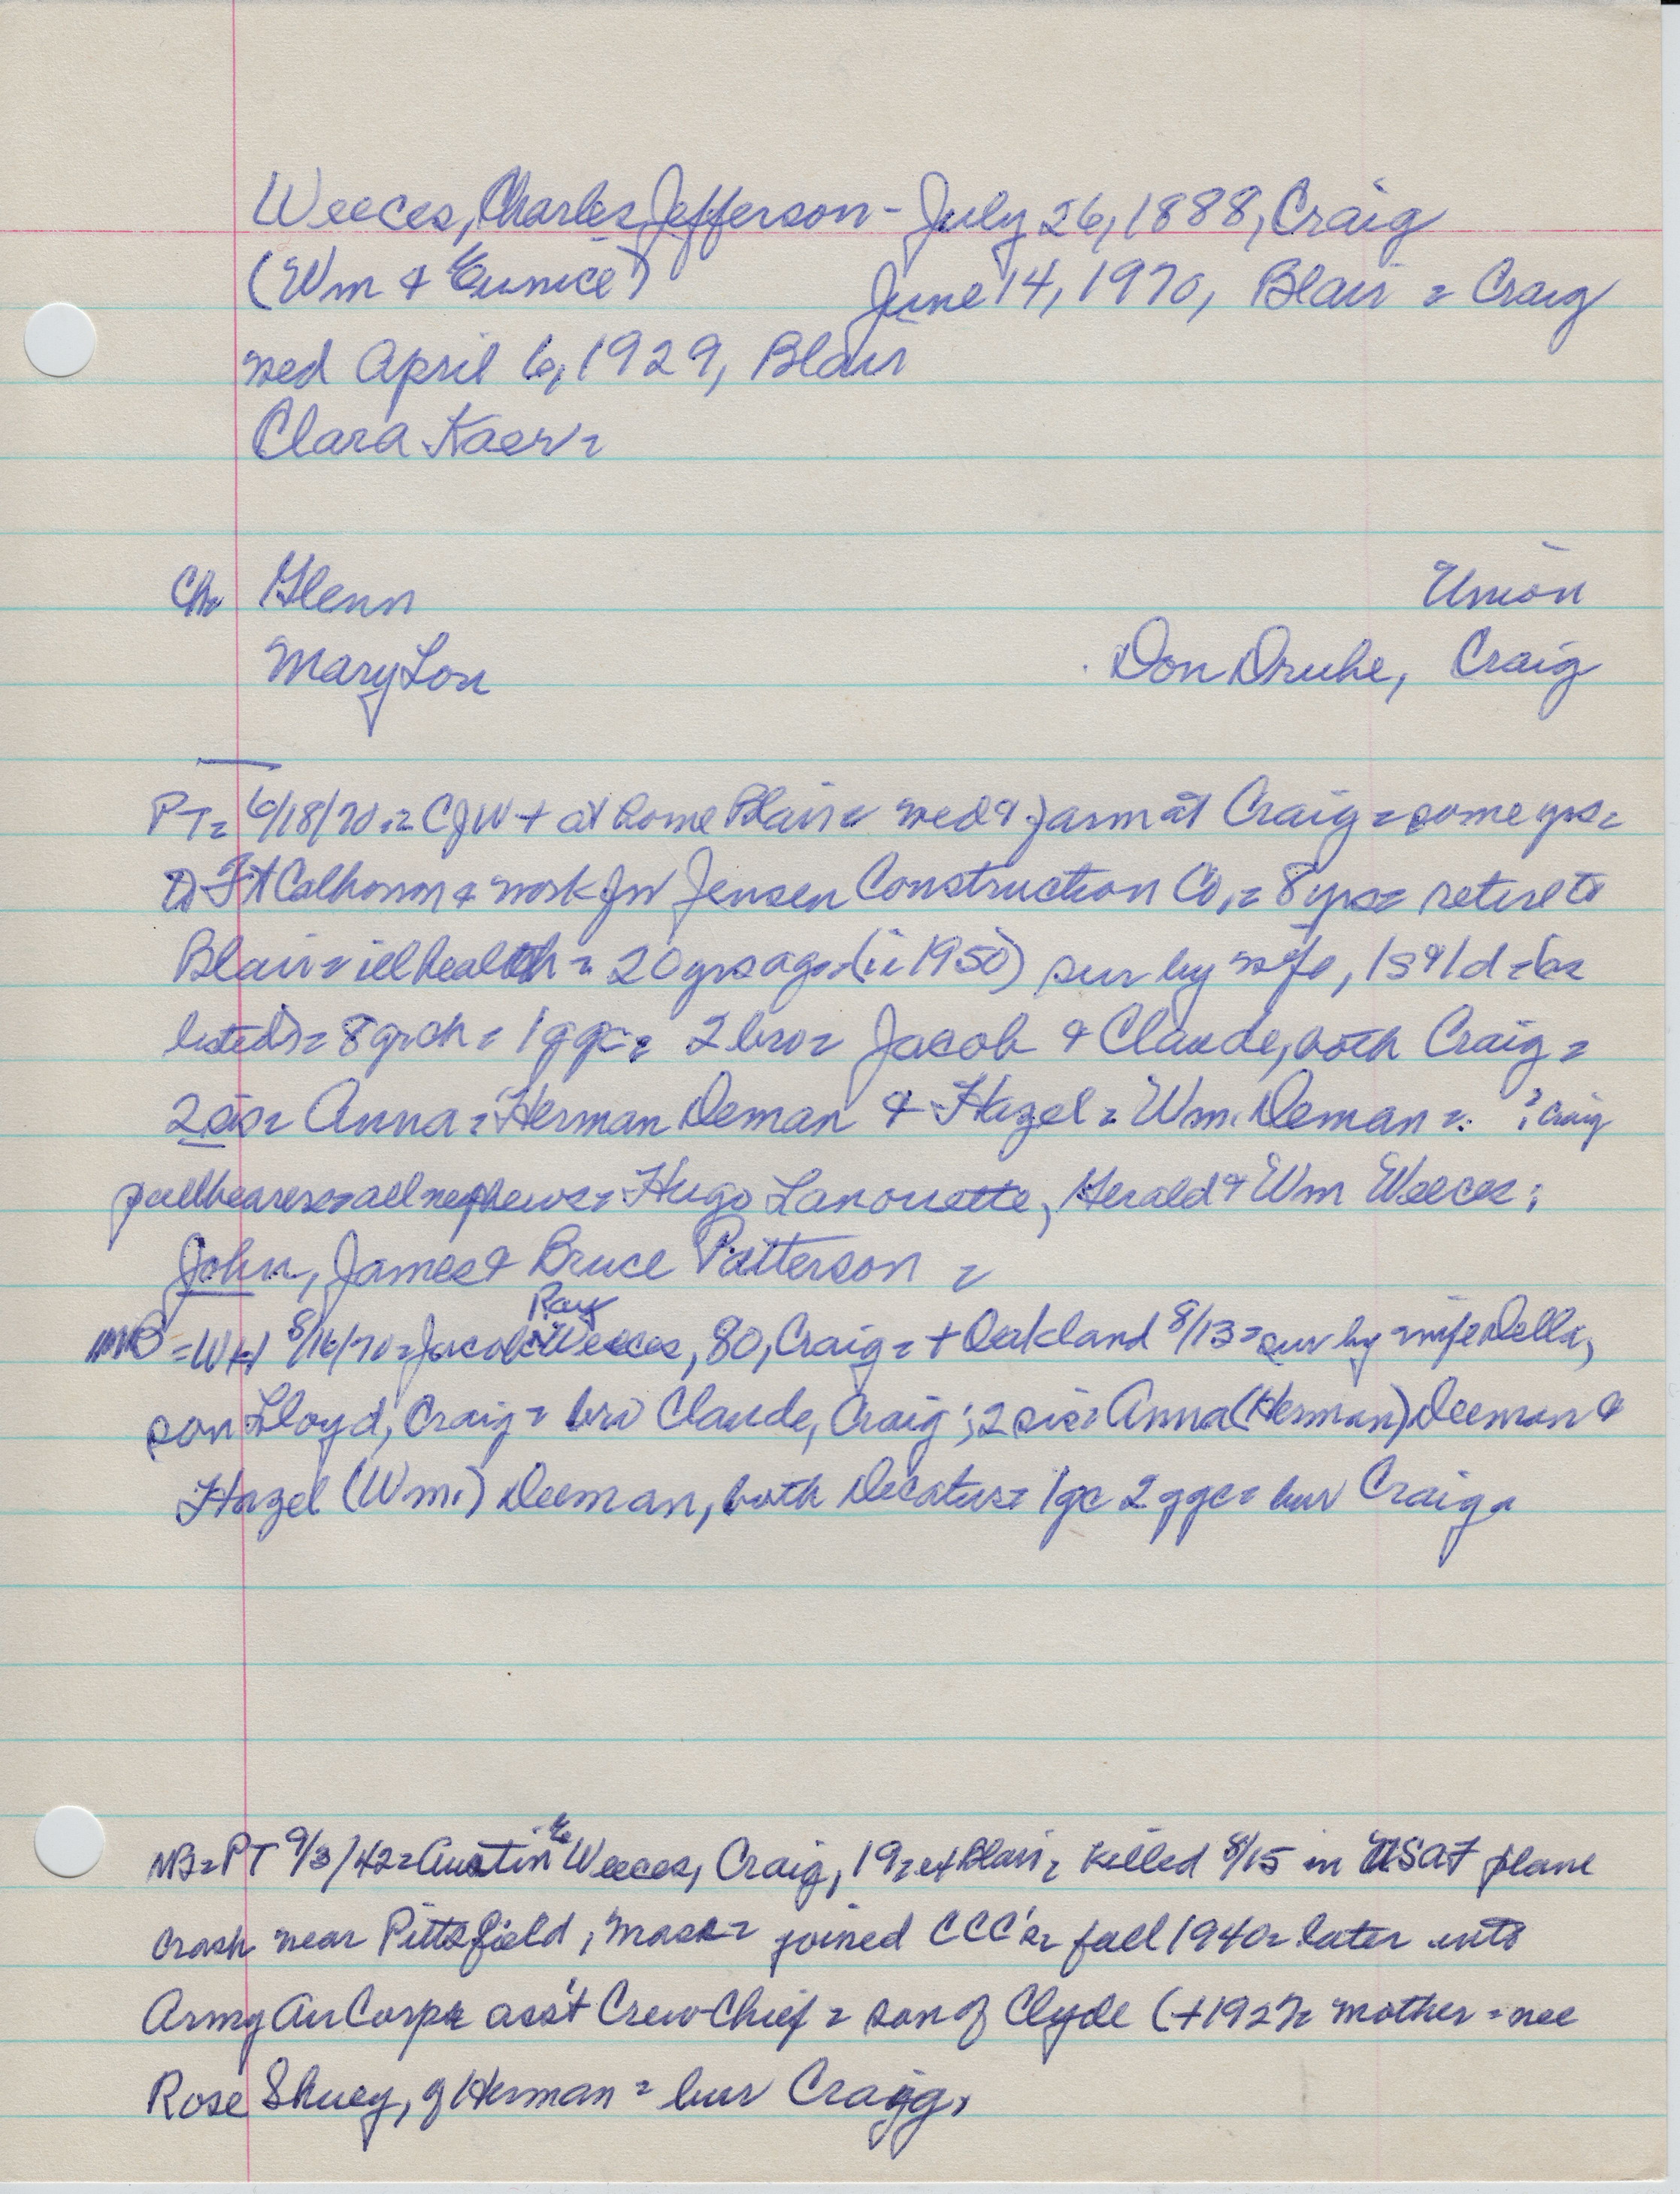 Weeces, Charles Jefferson - July 26, 1888, Craig
(Wm & Eunice) June 14, 1970, Blair = Craig
wed April 6, 1929, Blair
Clara Kaer =
Ch Glenn Union
Mary Lou Don Druhe, Craig
PT = 6/18/70 = CJW + at home Blair = wed & farm at Craig = some yrs =
to Ft Calhoun & work for Jensen Construction Co. = 8 yrs = retire to
Blair = ill health = 20 yrs ago (ie 1950) sur by wife, 1s & 1d = (as
listed) = 8 grch = 1 ggc = 2 bro = Jacob & Claude, both Craig =
2 sis = Anna = Herman Deman & Hazel = Wm. Deman = ? Craig
pallbearers = all nephews = Hugo Lanouette, Herald & Wm Weeces;
John, James & Bruce Patterson =
NB = WH 8/16/70 = Jacob Ray Weeces, 80, Craig = + Oakland 8/13 = sur by = wife Della,
son Lloyd, Craig = bro Claude, Craig; 2 sis = Anna (Herman) Deeman &
Hazel (Wm.) Deeman, both Decatur = 1gc 2 ggc = bur Craig =
NB = PT 9/3/42 = Austin E Weeces, Craig, 19 = Blair = killed 8/15 in USAF plane
crash near Pittsfield, Mass = joined CCC's = fall 1940 = later into
Army Air Corps ass't Crew Chief = son of Clyde (+1927 = mother = nee
Rose Shuey, of Herman = bur Craig,